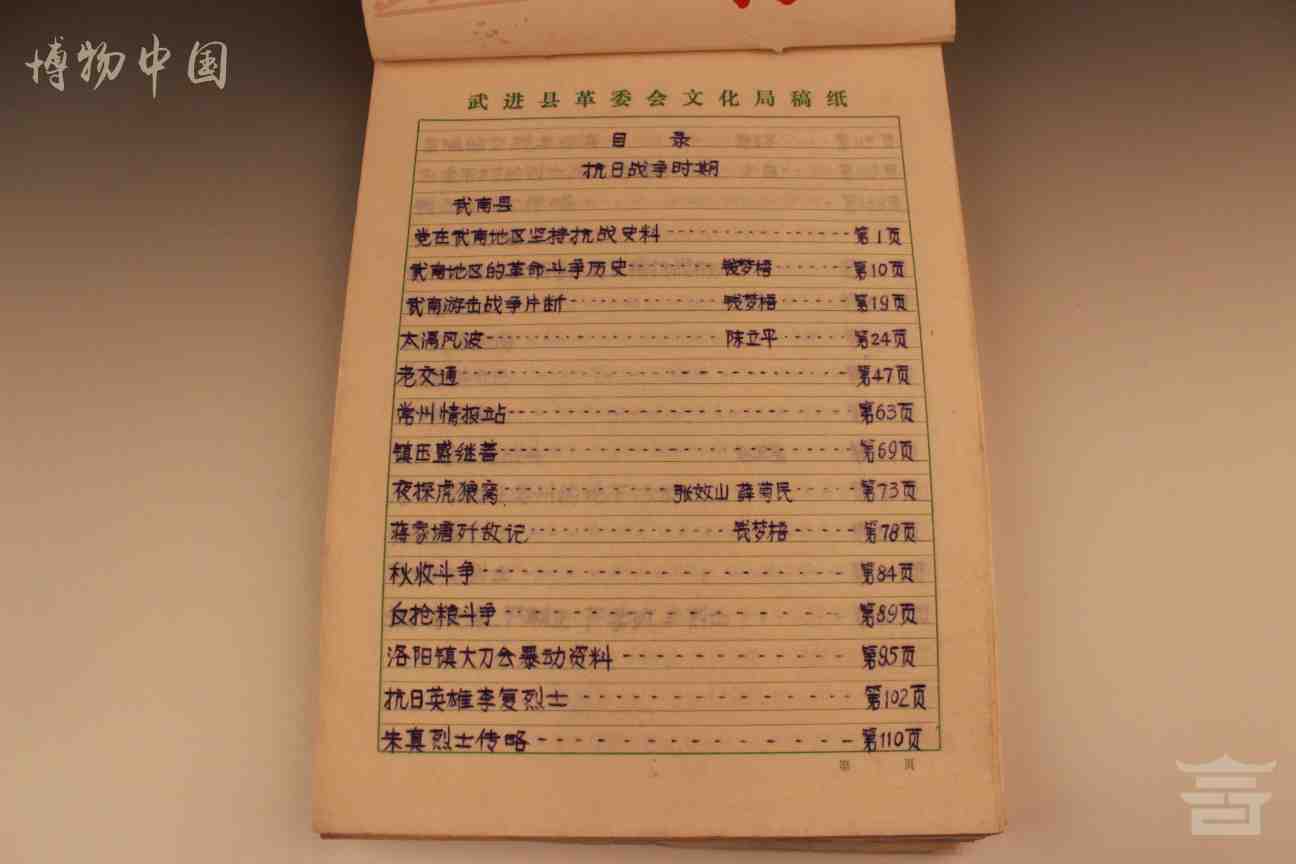 博物中国
武进县革委会文化局稿纸
目 录
抗日战争时期
武南县
党在武南地区坚持抗战史料 第1页
武南地区的革命斗争历史 钱梦梧 第10页
武南游击战争片断 钱梦梧 第19页
太滆风波 陈立平 第24页
老交通 第47页
常州情报站 第63页
镇压盛继善 第69页
夜探虎狼窝 张效山 薛菊民 第73页
蒋家塘歼敌记 钱梦梧 第78页
秋收斗争 第84页
反抢粮斗争 第89页
洛阳镇大刀会暴动资料 第95页
抗日英雄李复烈士 第102页
朱真烈士传略 第110页
第 页